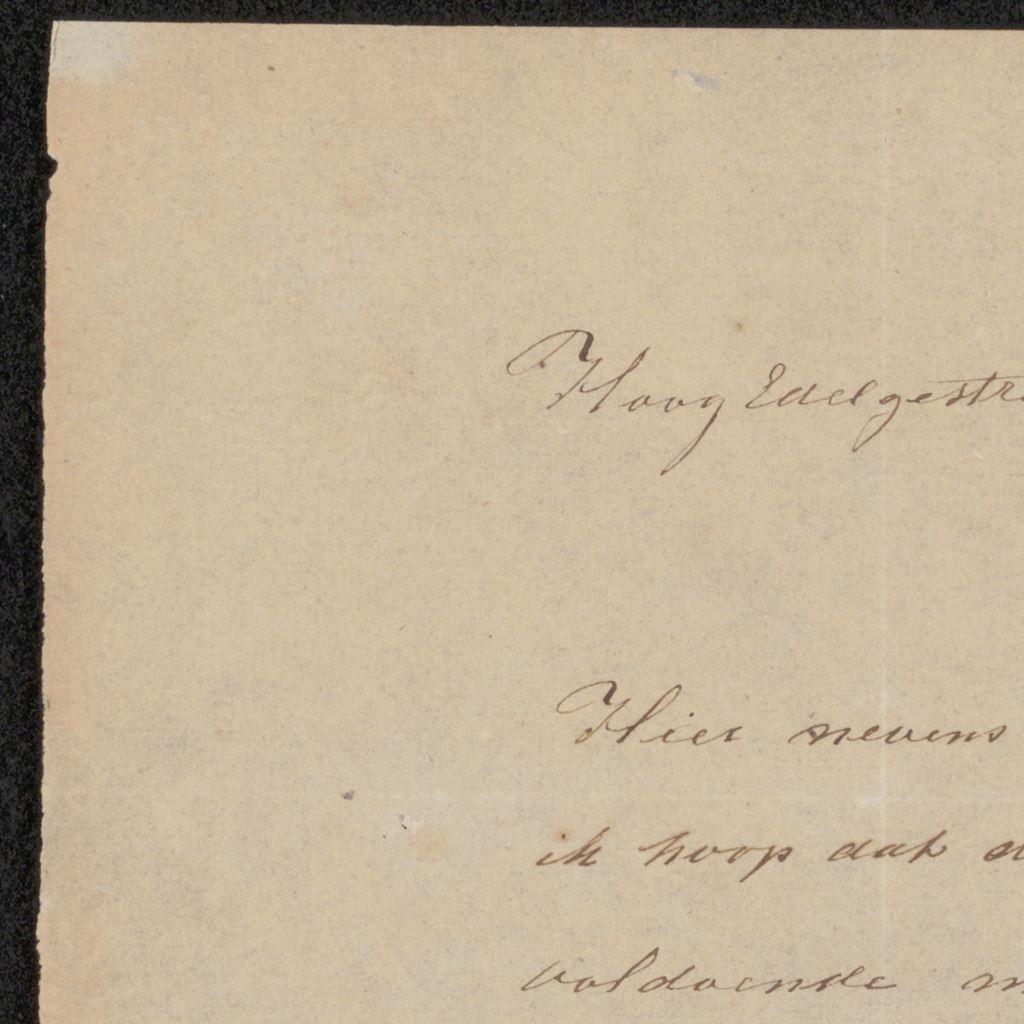 Hoog Edelgestr
Hier nevens
ik hoop dat
voldoende